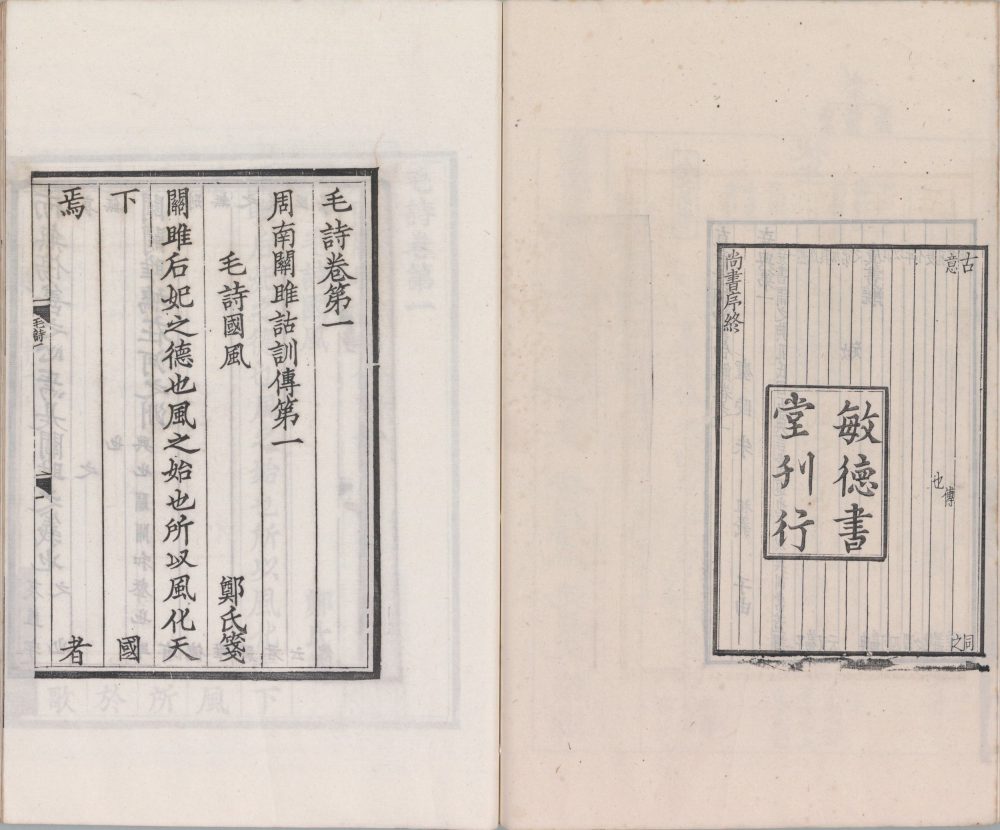 古 同
意 之
傳
也
敏德書
堂刋行
尚書序終
毛詩卷第一
周南關雎詁訓傳第一
毛詩國風 鄭氏箋
關雎后妃之德也風之始也所以風化天
下 國
焉 者
毛詩一